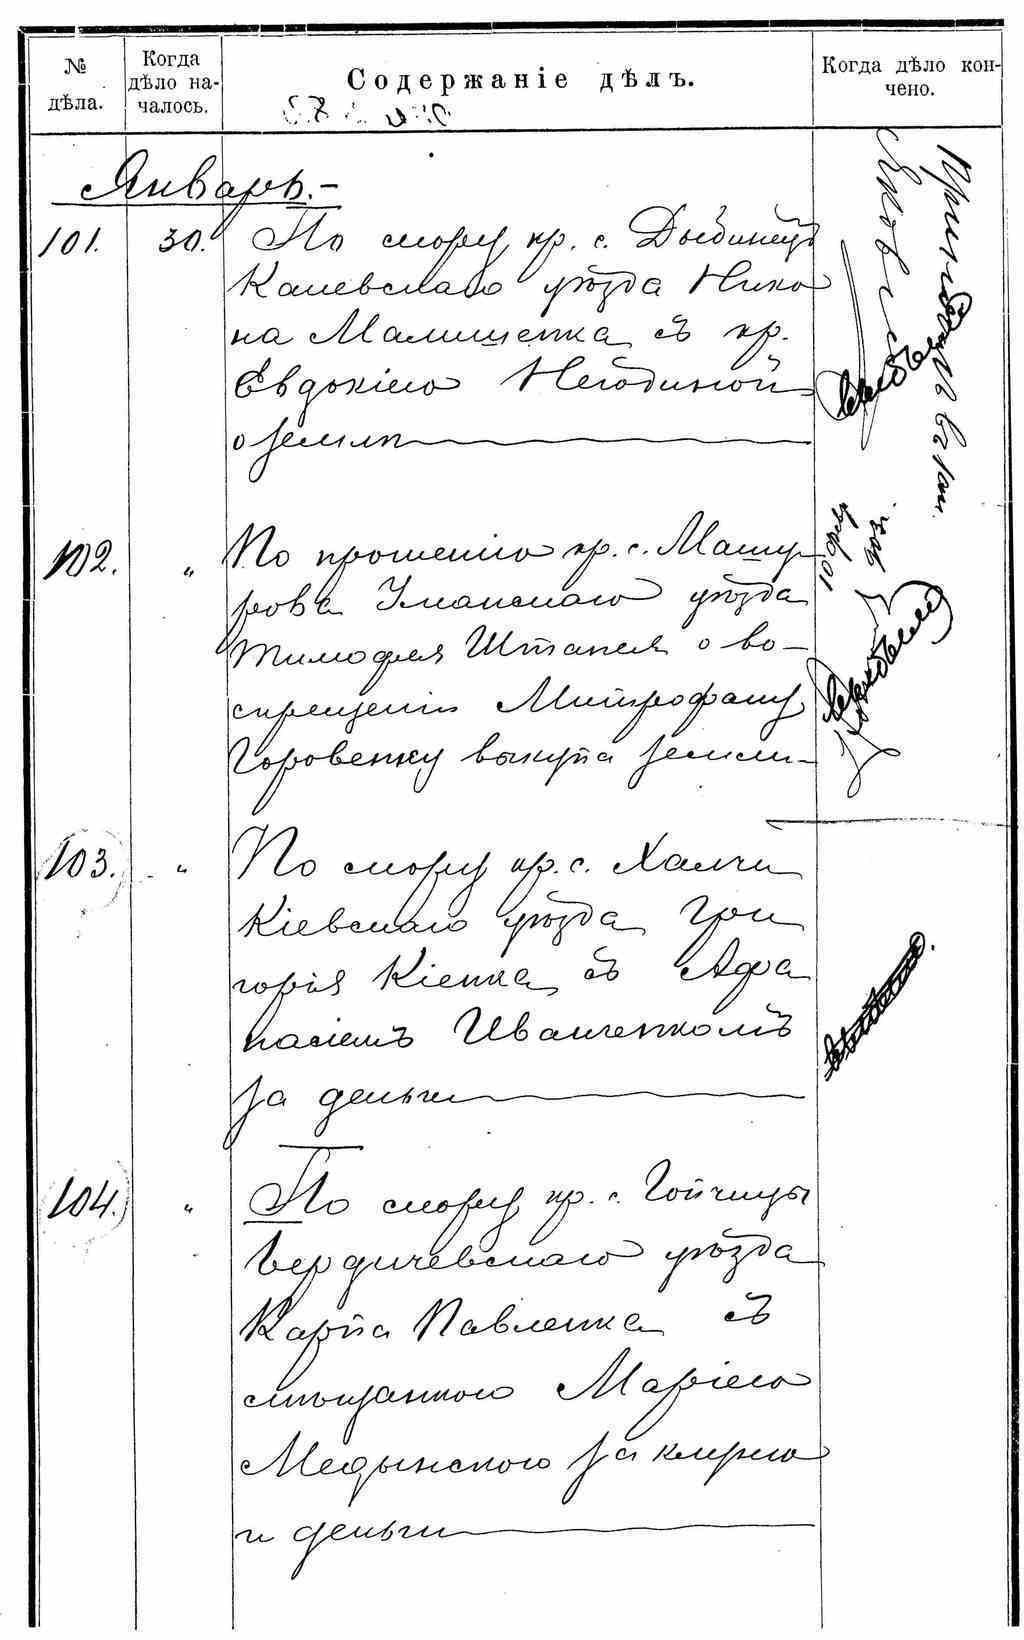 № дѣла.
Когда дѣло на-
чалось.
Содержаніе дѣлъ.
Когда дѣло кон-
чено.
Январь.-
101. 30. По спору кр. с. Дыбинец
Каневскаго уѣзда Нико
на Малишенка съ кр.
Евдокіею Негодиной
о землѣ
102. " По прошенію кр. с. Машу
рова Уманскаго уѣзда
Тимофея Штапея о во-
спрещеніи Митрофану
Горовенку выкупа земли-
10 февр
903 г.
103. " По спору кр. с. Халчи
Кіевскаго уѣзда Гри
горія Кіенка съ Афа
насіемъ Иванченкомъ
за деньги
104. " По спору кр. с. Гопчицы
Бердичевскаго уѣзда
Карпа Павленка съ
мѣщанкою Маріею
Медынскою за
и деньги